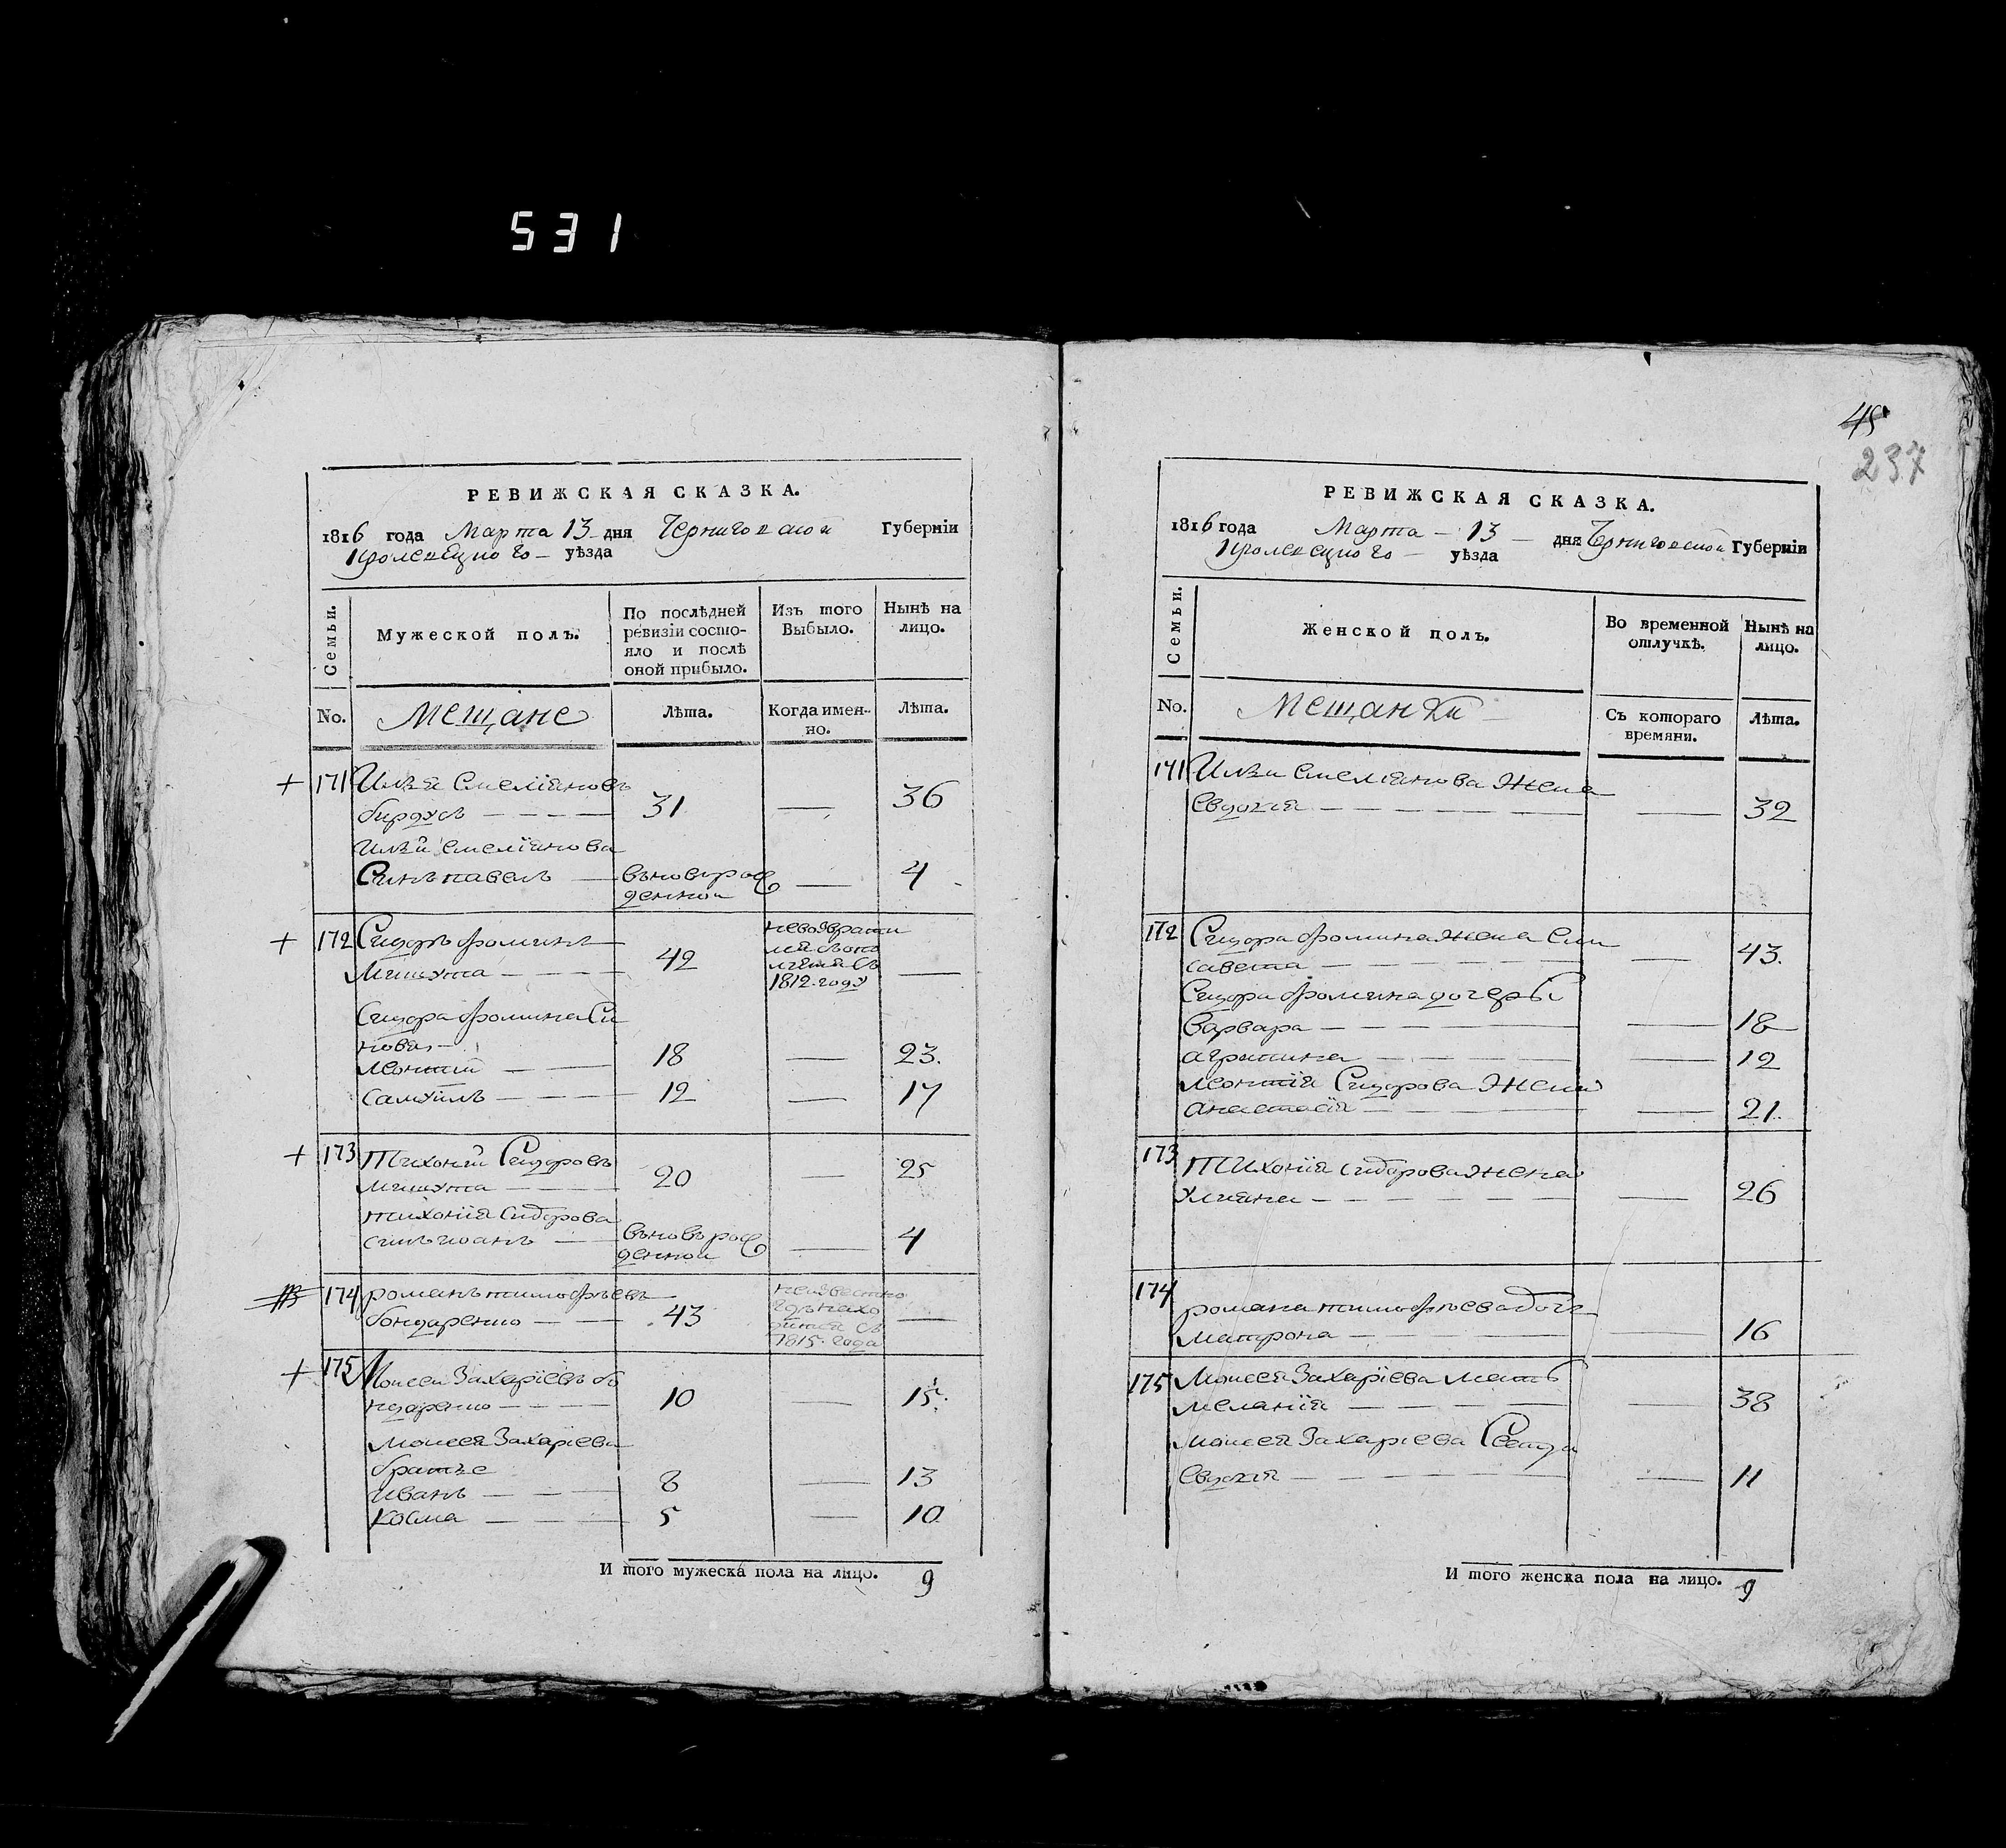 531
45
237
РЕВИЖСКАЯ СКАЗКА.
1816 года Марта 13 дня Черниговской Губерніи
Кролевецкого уѣзда
Семьи.
Мужеской полъ.
По послѣдней ревизіи состо-
яло и послѣ
оной прибыло.
Изъ того
Выбыло.
Нынѣ на
лицо.
No.
Мещане
Лѣта.
Когда имен-
но.
Лѣта.
171 Илѣя Емеліяновъ
31 — 36
Илѣи емеліянова
Синъ павелъ — вьновьрож
денной — 4
172 Сидоръ фоминъ
Мишута — 42
невозврати
1812 году —
Сидора фомина Си
новя
леонтий — 18 — 23.
самуилъ — 12 — 17
173 Тихоний Сидоровъ
мишута — 20 — 25
тихонія Сидорова
синъ иоанъ — вьновьрож
денной — 4
174 романъ тимофѣевъ
бондаренко — 43
неизвестно
гдѣ нахо
дится съ
1815 года —
175 Моисей Захаріевъ бо
ндаренко — 10 — 15.
моисея Захаріева
братье
иванъ — 8 — 13
косма — 5 — 10
И того мужеска пола на лицо. 9
РЕВИЖСКАЯ СКАЗКА.
1816 года Марта 13 дня Черниговской Губерніи
Кролевецкого уѣзда
Семьи.
Женской полъ.
Во временной
отлучкѣ.
Нынѣ на
лицо.
No.
Мещанки
Съ котораго
времяни.
Лѣта.
171 Илѣи емеліянова Жена
Евдокія — 32
172 Сидора фомина жена Ели
савета — 43.
Сидора фомина дочерѣ
Варвара — 18
агрипина — 12
леонтія Сидорова Жена
анастасія — 21.
173 Тихонія сидорова жена
улияна — 26
174
романа тимофѣева дочь
матрона — 16
175 Моисея Захаріева мать
меланія — 38
моисея Захаріева Сестра
Евдокія — 11
И того женска пола на лицо. 9